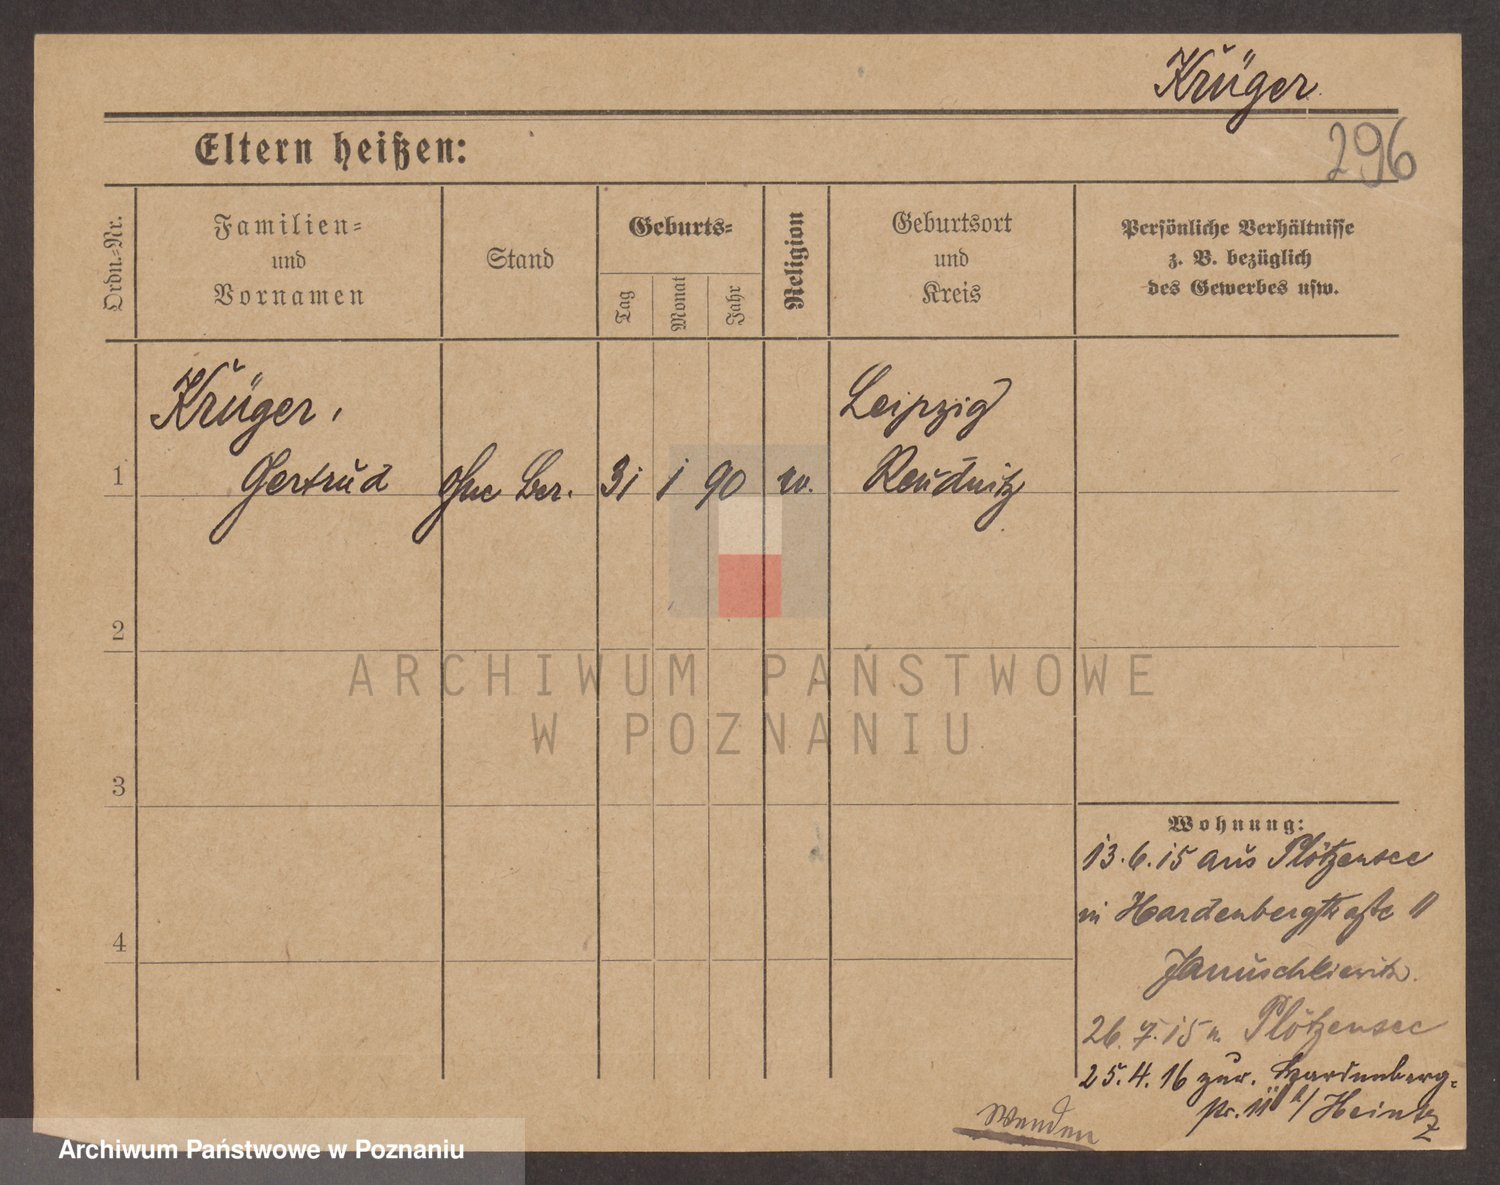 Krüger
296
Eltern heißen:
Ordn.-Nr.
Familien-
und
Vornamen
Stand
Geburts-
Tag
Monat
Jahr
Religion
Geburtsort
und
Kreis
Persönliche Verhältnisse
z. B. bezüglich
des Gewerbes usw.
Krüger,
Leipzig
1 Gertrud Ohne Ber. 31 1 90 Reudnitz
2
ARCHIWUM PAŃSTWOWE
W POZNANIU
3
Wohnung:
13.6.15 aus Plötzensee
in Hardenbergstraße 11
Januschkiewitz.
26.7.15 n. Plötzensee
25.4.16 zur. Hardenberg-
b/ Heintz
4
Wenden
Archiwum Państwowe w Poznaniu